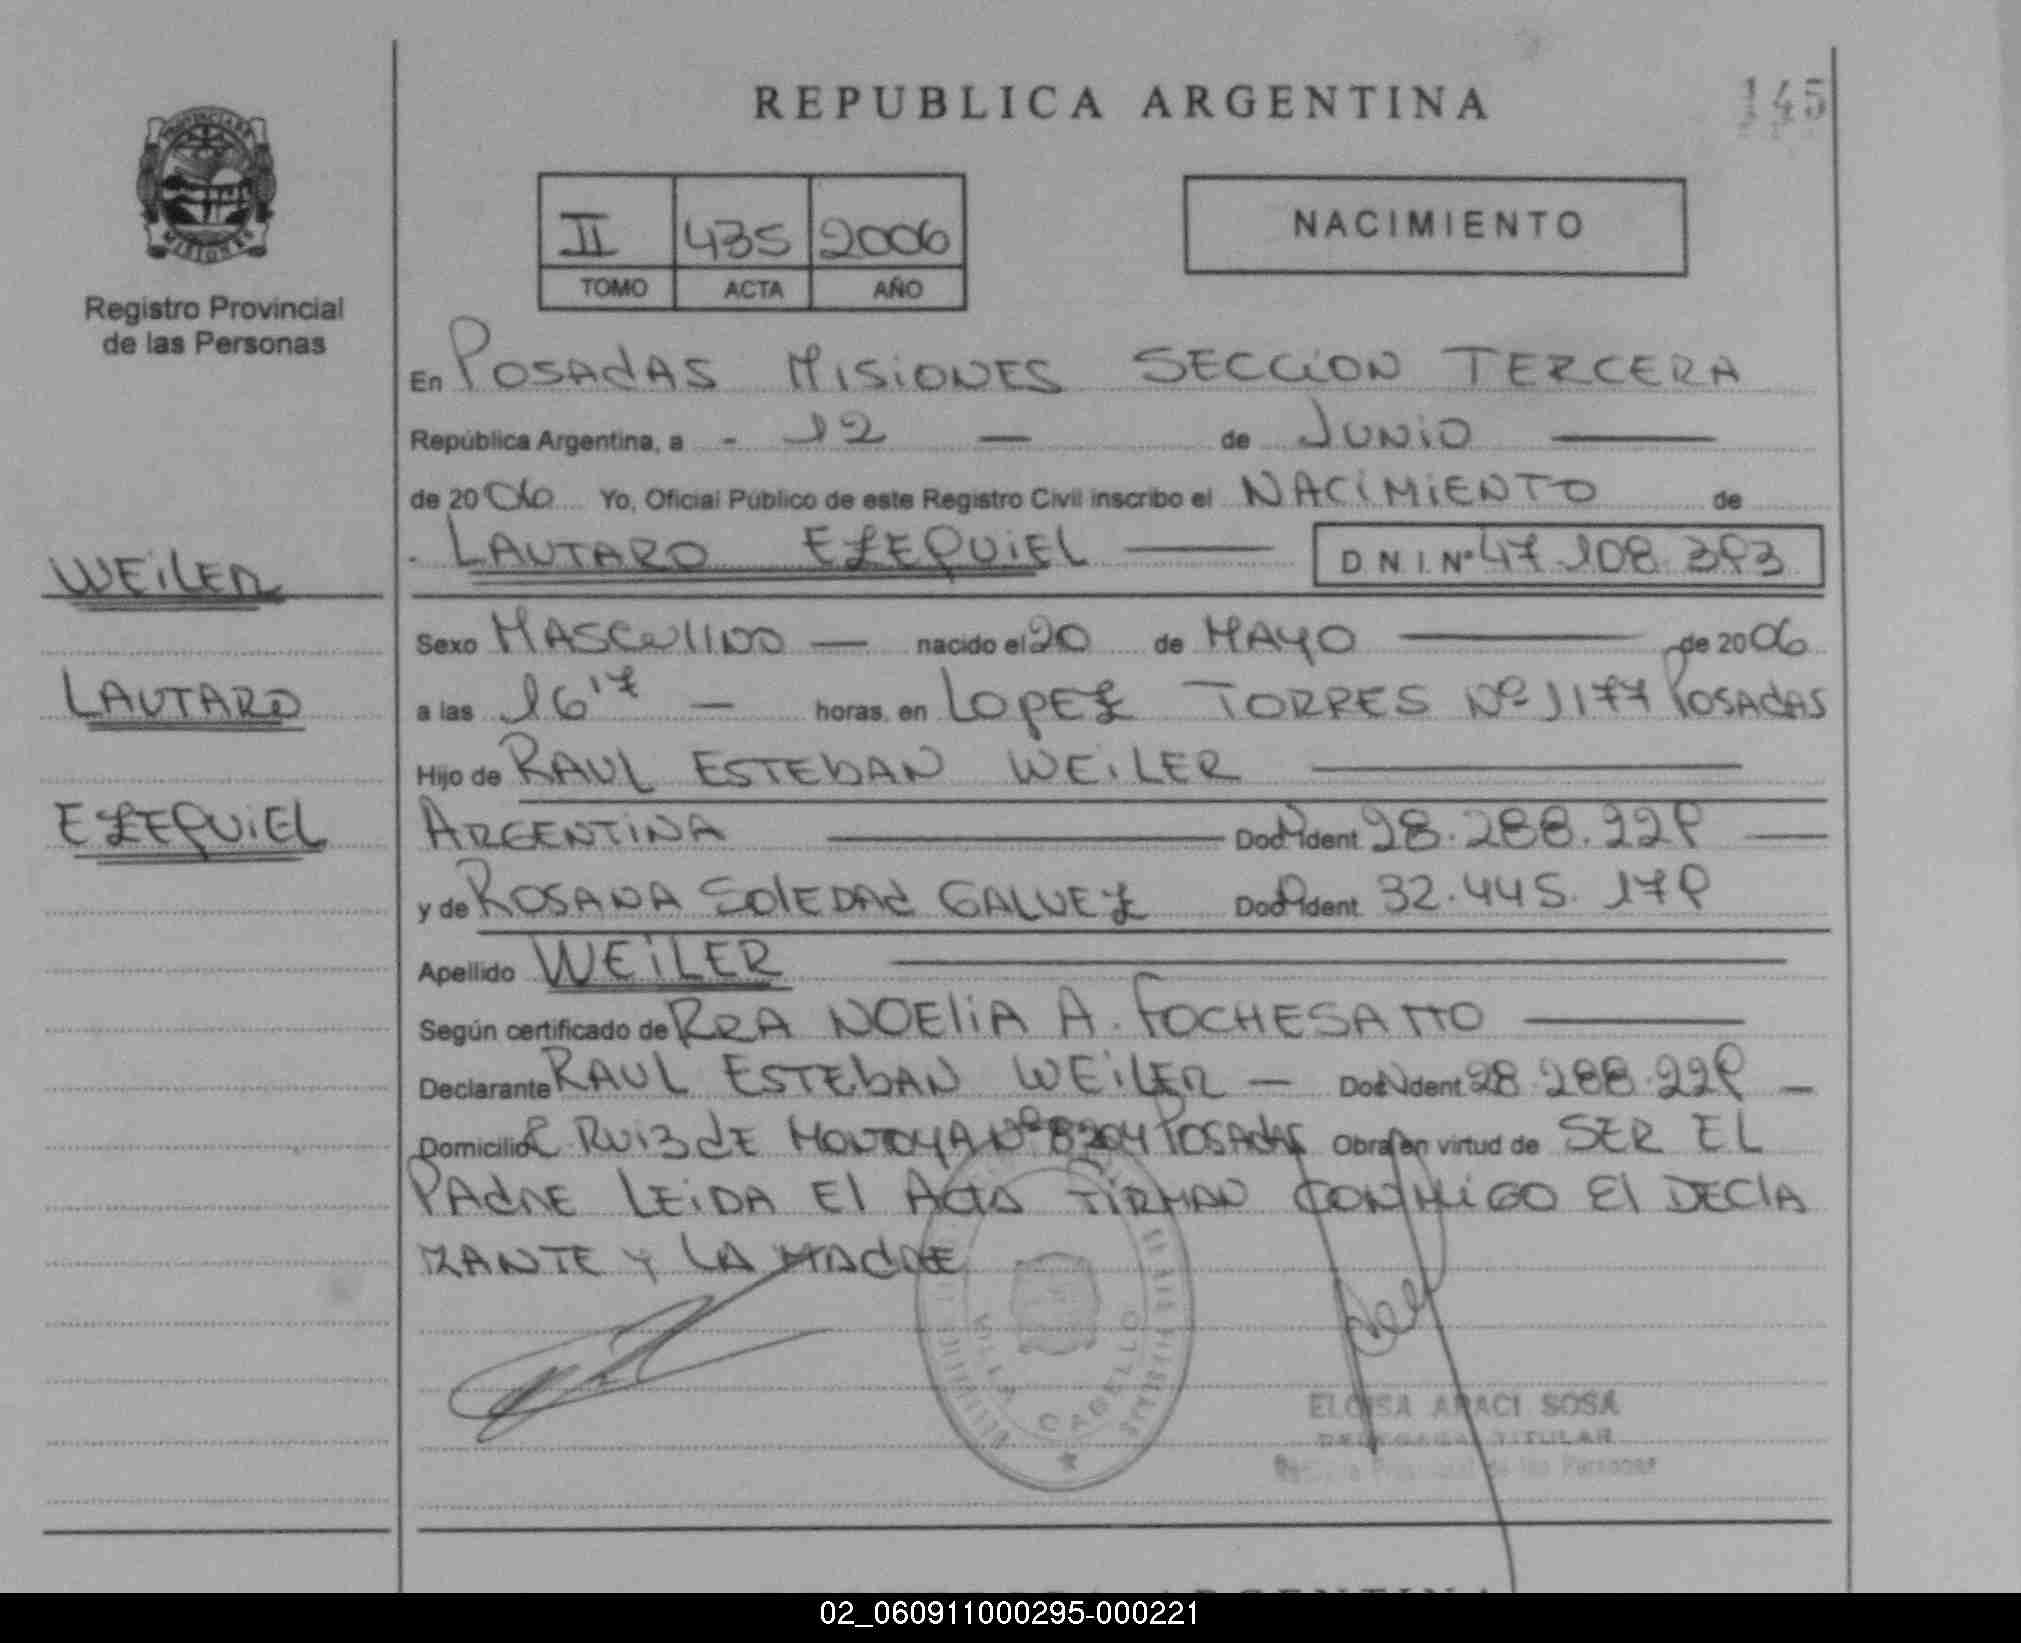 REPUBLICA ARGENTINA
145
PROVINCIA DE
MISIONES
Registro Provincial
de las Personas
II 435 2006
TOMO ACTA AÑO
NACIMIENTO
En POSADAS MISIONES SECCION TERCERA
República Argentina, a - 12 — de JUNIO —
de 2006 Yo, Oficial Público de este Registro Civil inscribo el NACIMIENTO de
LAUTARO EZEQUIEL — D.N.I. Nº 47.108.393
WEILER
Sexo MASCULINO — nacido el 20 de MAYO — de 2006
LAUTARO
a las 16 17 — horas, en LOPEZ TORRES Nº 1177 POSADAS
Hijo de RAUL ESTEBAN WEILER —
EZEQUIEL
ARGENTINA — Doc. Ident. 28.288.229 —
y de ROSANA SOLEDAD GALVEZ Doc. Ident. 32.445.179
Apellido WEILER —
Según certificado de RRA NOELIA A. FOCHESATTO —
Declarante RAUL ESTEBAN WEILER — Doc. Ident. 28.288.229 —
Domicilio C RUIZ DE MONTOYA Nº 8204 POSADAS Obra en virtud de SER EL
PADRE LEIDA El ACTA FIRMAN CONMIGO El DECLA
RANTE Y LA MADRE
VILLA CABELLO
ELOISA ARACI SOSA
DELEGADA TITULAR
Registro Provincial de las Personas
02_060911000295-000221